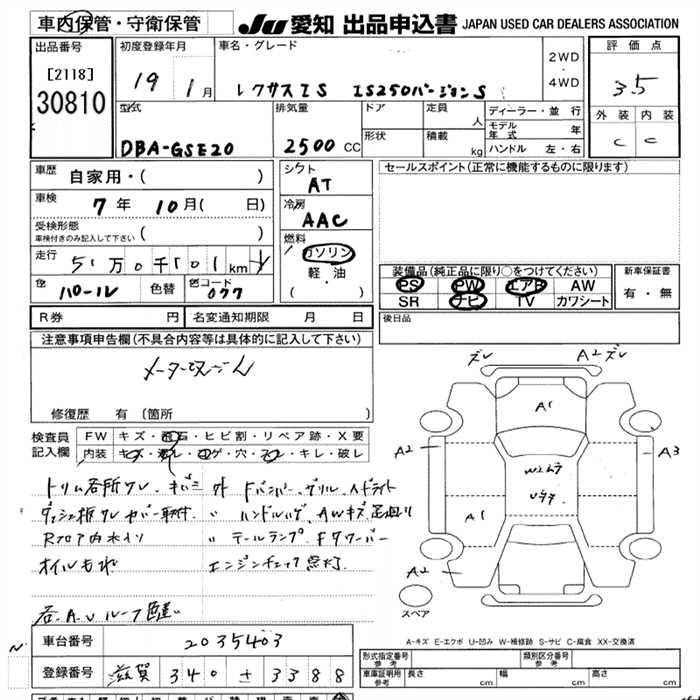 車内保管・守衛保管 JU 愛知 出品申込書 JAPAN USED CAR DEALERS ASSOCIATION
出品番号 初度登録年月 車名・グレード 2WD ・ 4WD 評価点
[2118] 19 1月 レクサスIS IS250バージョンS 35
30810 外装 内装
型式 排気量 ドア 定員 人 ディーラー・並行 C C
モデル年式 年
DBA-GSE20 2500CC 形状 積載 kg ハンドル 左・右
車歴 自家用・( ) シフト AT セールスポイント(正常に機能するものに限ります)
車検 7年 10月( 日) 冷房 AAC
受検形態
車検付きのみ記入して下さい ( )
燃料 ガソリン 軽油 ( ・ )
走行 5万0千101km
装備品(純正品に限り○をつけてください) 新車保証書
PS PW エアB AW 有・無
SR ナビ TV カワシート
色 パール 色替 色コード 077
R券 円 名変通知期限 月 日 後日品
注意事項申告欄(不具合内容等は具体的に記入して下さい)
修復歴 有 (箇所
ズレ A2ズレ
A1
A2 A3
A1
A2
スペア
検査員記入欄 FW キズ・飛石・ヒビ割・リペア跡・X要
内装 キズ・汚レ・コゲ・穴・スレ・キレ・破レ
トリム各所ワレ・キズ 外 Fバンパー、グリル、ヘッドライト
〃 ハンドルハゲ、AWキズ、足廻り
Rフロア内水入り 〃 テールランプ、Fタワーバー
オイルもれ エンジンチェック点灯
A-キズ E-エクボ U-凹み W-補修跡 S-サビ C-腐食 XX-交換済
車台番号 2035403
登録番号 滋賀 340 せ 3388
形式指定番号 参考 類別区分番号 参考
車庫証明用 参考 長さ cm 幅 cm 高さ cm